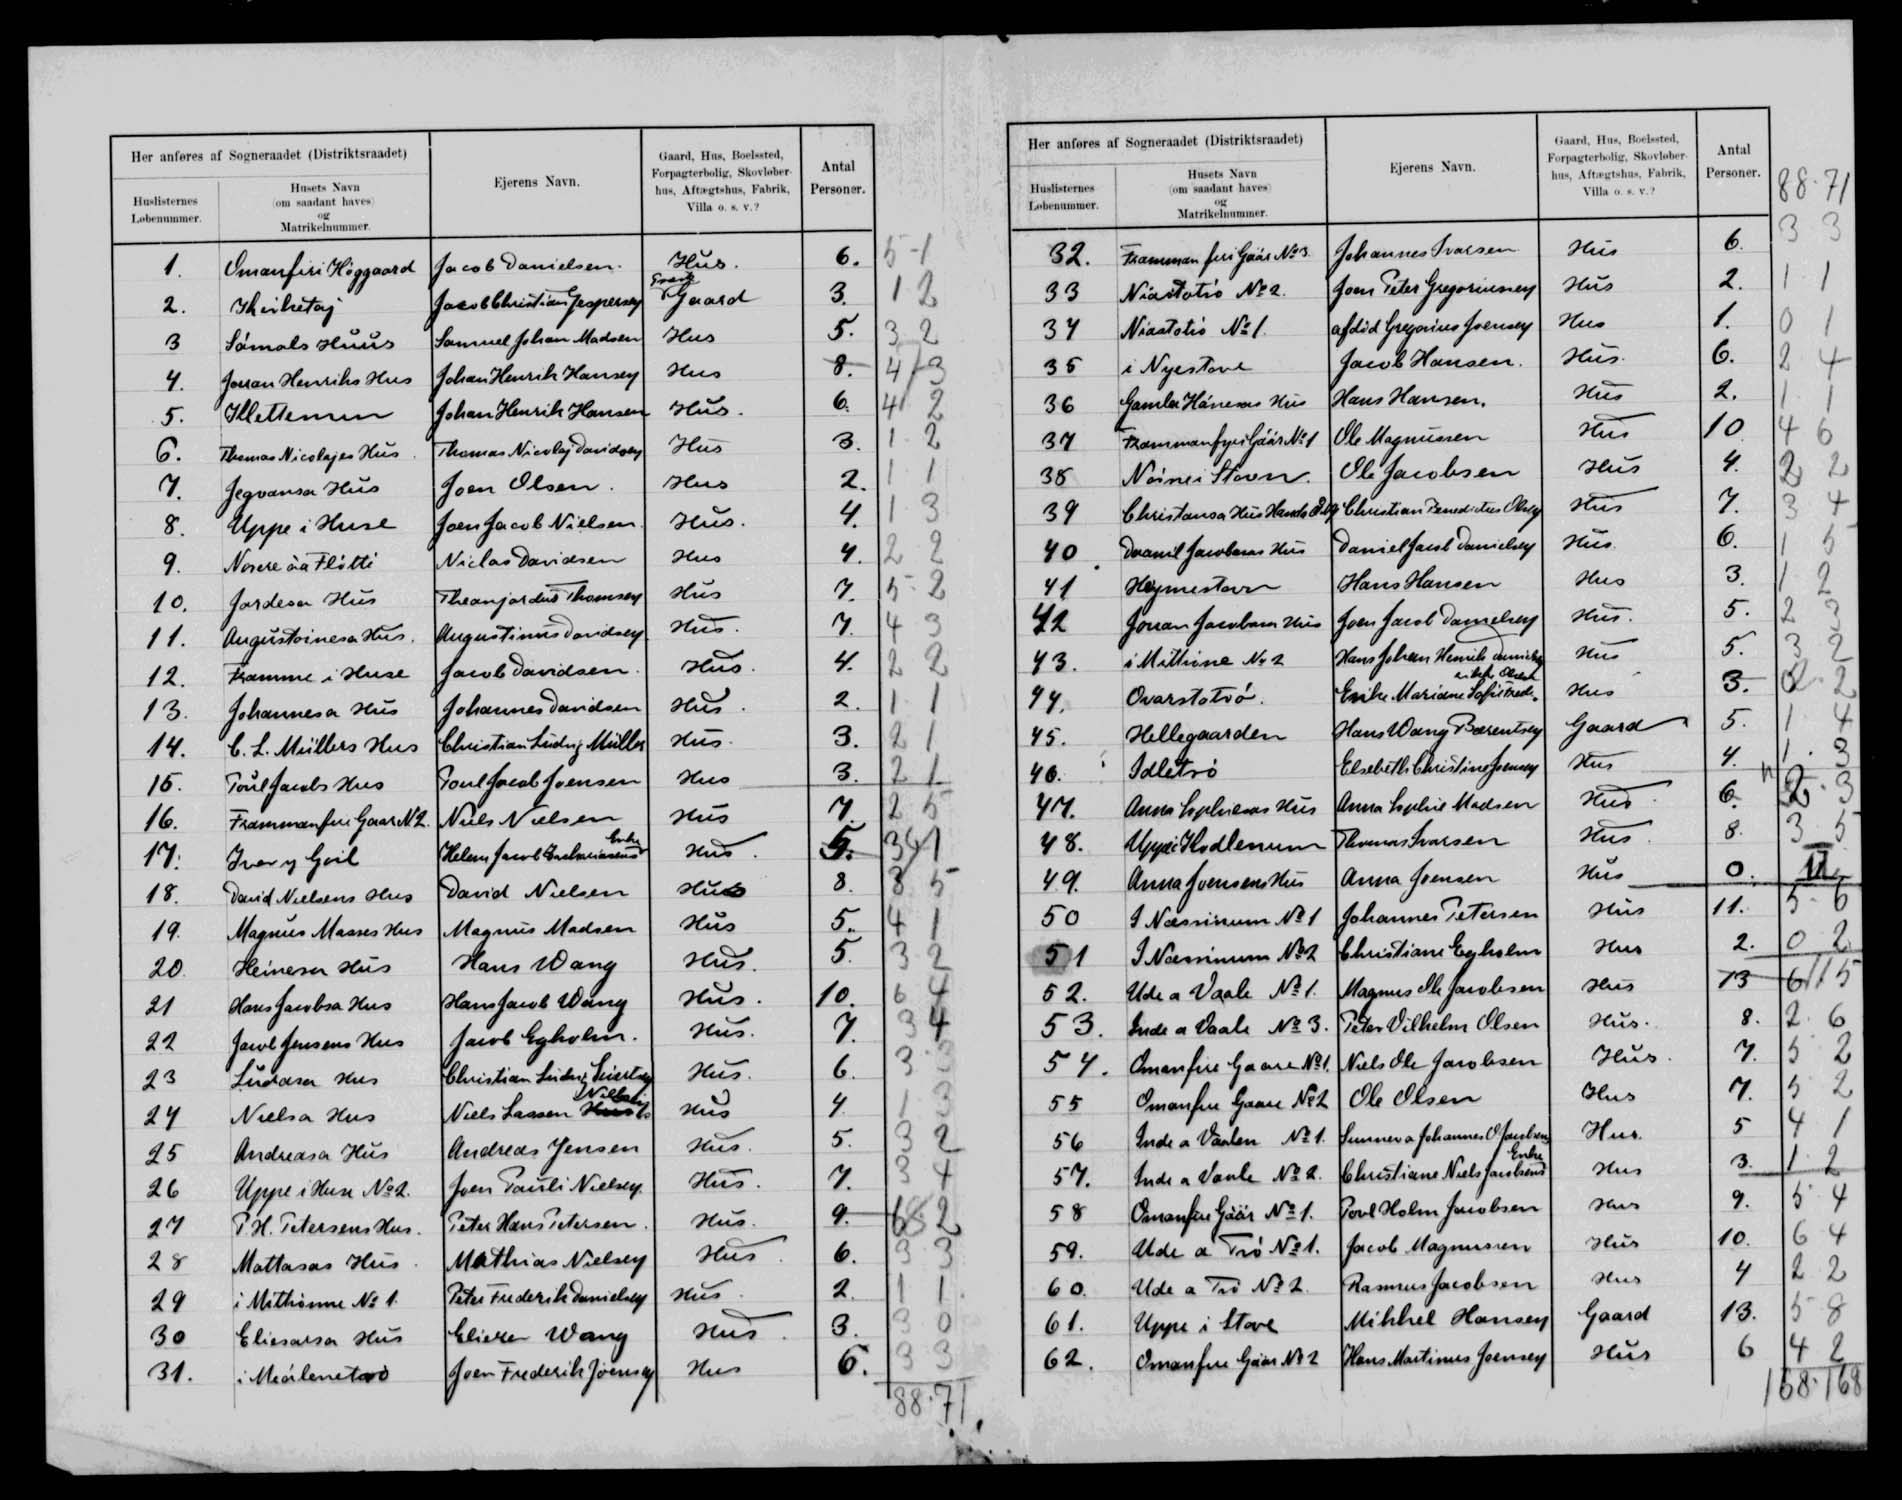 Her anføres af Sogneraadet (Distriktsraadet)
Huslisternes Løbenummer.
Husets Navn (om saadant haves) og Matrikelnummer.
Ejerens Navn.
Gaard, Hus, Boelssted, Forpagterbolig, Skovløberhus, Aftægtshus, Fabrik, Villa o. s. v.?
Antal Personer.
1. Omanfiri Höggaard Jacob Danielsen. Hus. 6. 5-1
2. Jacob Christian Jespersen Gaard 3. 1 2
3 Sámals Huus Samuel Johan Madsen Hus 5. 3 2
4. Joran Henriks Hus Johan Henrik Hansen Hus 8. 4 3
5. Klettemun Johan Henrik Hansen Hus. 6. 4 2
6. Thomas Nicolajes Hus Thomas Nicolaj Davidsen Hus 3. 1 2
7. Jegvansa Hus Joen Olsen. Hus 2. 1 1
8. Uppe i Huse Joen Jacob Nielsen Hus. 4. 1 3
9. Norere áa Flötti Niclas Davidsen Hus 4. 2 2
10. Jardesa Hus Theanjardus Thomsen Hus 7. 5-2
11. Augustoinesa Hus. Augustinus Davidsen Hus. 7. 4 3
12. Framme i Huse Jacob Davidsen. Hus. 4. 2 2
13. Johannesa Hus Johannes Davidsen Hus. 2. 1 1
14. C. L. Müllers Hus Christian Ludvig Müller Hus. 3. 2 1
15. Poul Jacobs Hus Poul Jacob Joensen Hus 3. 2 1
16. Frammanfuri Gaar No 2. Niels Nielsen Hus 7. 2 5
17. Ivar y Geil Helene Jacob Zachariasens Enke Hus. 5. 1
18. David Nielsens Hus David Nielsen Hus 8. 3 5
19. Magnus Masses Hus Magnus Madsen Hus 5. 4 1
20. Heinesa Hus Hans Wang Hus. 5. 3 2
21 Hans Jacobsa Hus Hans Jacob Wang Hus. 10. 6 4
22 Jacob Jensens Hus Jacob Egholm. Hus. 7. 3 4
23 Ludvasa Hus Christian Ludvig Hus. 6. 3 3
24 Nielsa Hus Niels Lassen Nielsen Hus 4 1 3
25 Andreasa Hus Andreas Jensen Hus. 5. 3 2
26 Uppe i Huse No 2. Joen Pauli Nielsen Hus. 7. 3 4
27 P. H. Petersens Hus. Peter Hans Petersen. Hus. 9. 2
28 Mattasas Hus Mathias Nielsen Hus. 6. 3 3
29 i Mithionne No 1. Peter Frederik Danielsen Hus. 2. 1 1.
30 Eliesarsa Hus Elieser Wang Hus. 3. 3 0
31. i Meálenetrö Joen Frederik Joensen Hus 6. 3 3
88.71
Her anføres af Sogneraadet (Distriktsraadet)
Huslisternes Løbenummer.
Husets Navn (om saadant haves) og Matrikelnummer.
Ejerens Navn.
Gaard, Hus, Boelssted, Forpagterbolig, Skovløberhus, Aftægtshus, Fabrik, Villa o. s. v.?
Antal Personer.
88.71
32. Framman furi Gáár No 3. Johannes Ivarsen Hus 6. 3 3
33 Niastotró No 2. Joen Peter Gregoriussen Hus 2. 1 1
34 Niastotró No 1. afdöd Gregorius Joensen Hus 1. 0 1
35 i Nyestove Jacob Hansen. Hus. 6. 2 4
36 Gamla Hánesas Hus Hans Hansen. Hus 2. 1 1
37 Frammanfyri Gáár No 1 Ole Magnussen Hus 10 4 6
38 Nörne i Stovn. Ole Jacobsen Hus 4. 2 2
39 Christansa Hus Christian Benedictus Olsen Hus 7. 3 4
40 Daaniel Jacobsas Hus Daniel Jacob Danielsen Hus. 6. 1 5
41 Höjmestovn Hans Hansen Hus 3. 1 2
42 Jonan Jacobsas Hus Joen Jacob Danielsen Hus. 5. 2 3
43. i Mittione No 2 Hans Johan Henrik Danielsen Hus 5. 3 2
44. Ovarstotró. Enke Mariane Hus 3. 2
45. Hellegaarden Hans Wang Bærentsen Gaard 5. 1 4
46. Idletró Elsebeth Christine Joensen Hus 4. 1. 3
47. Anna Sophiesas Hus Anna Sophie Madsen Hus. 6. 2. 3
48. Uppi i Hodlenum Thomas Ivarsen Hus. 8. 3 5
49. Anna Joensens Hus Anna Joensen Hus 0.
50 I Næssinum No 1 Johannes Petersen Hus 11. 5 6
51 I Næssinum No 2 Christiane Egholm Hus 2. 0 2
52. Ude a Vaale No 1. Magnus Ole Jacobsen Hus 13
53. Inde a Vaale No 3. Peter Vilhelm Olsen Hus. 8. 2. 6
54. Omanfure Gaare No 1. Niels Ole Jacobsen Hus. 7. 5 2
55 Omanfure Gaare No 2 Ole Olsen Hus 7. 5 2
56 Inde a Vaalen No 1. Sunneva Johannes O Jacobsens Hus. 5 4 1
57. Inde a Vaale No 2. Christiane Niels Jacobsens Enke Hus 3. 1. 2
58 Omanfure Gáár No 1. Povl Holm Jacobsen Hus 9. 5 4
59. Ude a Tró No 1. Jacob Magnussen Hus 10. 6 4
60. Ude a Tró No 2. Rasmus Jacobsen Hus 4 2 2
61. Uppe i Stove Mikkel Hansen Gaard 13. 5 8
62. Omanfure Gáár No 2 Hans Martinus Joensen Hus 6 4 2
168.168